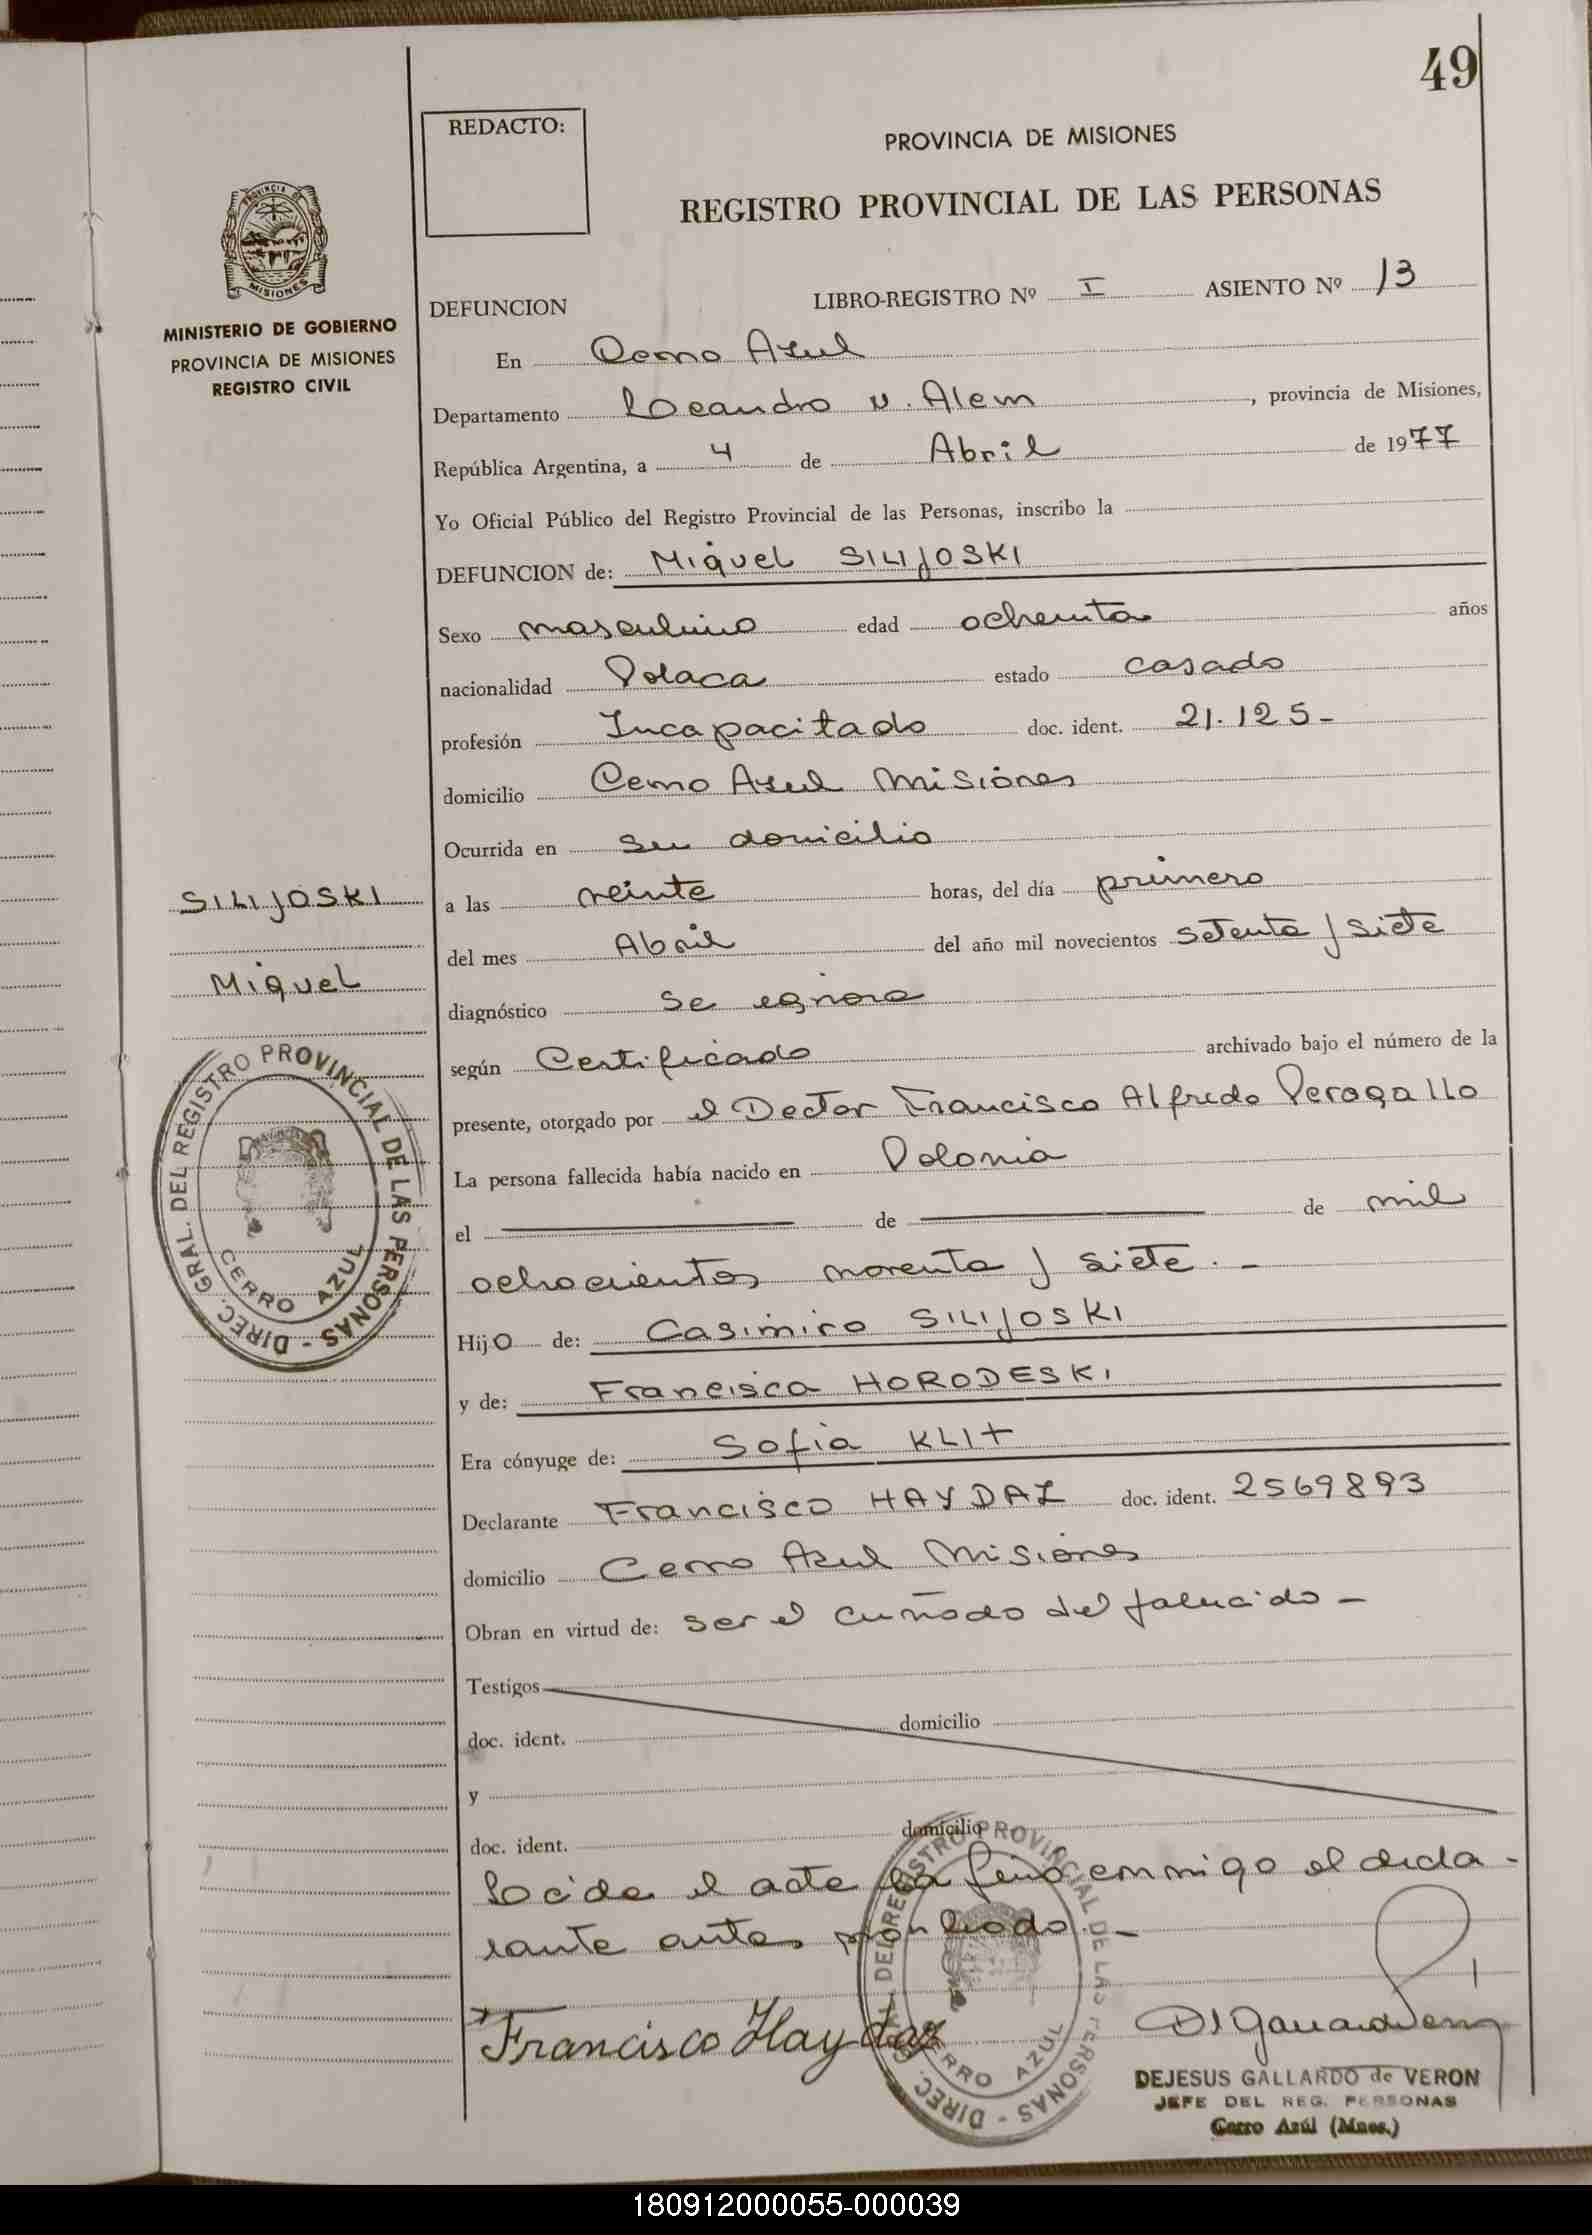 49
REDACTO:
PROVINCIA DE MISIONES
REGISTRO PROVINCIAL DE LAS PERSONAS
PROVINCIA DE
MISIONES
MINISTERIO DE GOBIERNO
PROVINCIA DE MISIONES
REGISTRO CIVIL
DEFUNCION LIBRO-REGISTRO Nº I ASIENTO Nº 13
En Cerro Azul
Departamento Leandro N. Alem, provincia de Misiones,
República Argentina, a 4 de Abril de 1977
Yo Oficial Público del Registro Provincial de las Personas, inscribo la
DEFUNCION de: Miguel SILIJOSKI
Sexo masculino edad ochenta años
nacionalidad Polaca estado casado
profesión Incapacitado doc. ident. 21.125-
domicilio Cerro Azul Misiones
Ocurrida en su domicilio
SILIJOSKI
Miguel
a las veinte horas, del día primero
del mes Abril del año mil novecientos setenta y siete
diagnóstico se egnora
según Certificado archivado bajo el número de la
presente, otorgado por el Doctor Francisco Alfredo Peragallo
La persona fallecida había nacido en Polonia
el de de mil
ochocientos noventa y siete.-
Hijo de: Casimiro SILIJOSKI
y de: Francisca HORODESKI
Era cónyuge de: Sofia KLIT
Declarante Francisco HAYDAZ doc. ident. 2569893
domicilio Cerro Azul Misiones
Obran en virtud de: ser el cuñado del falucido-
Testigos
doc. ident. domicilio
y
doc. ident. domicilio
el acte la conmigo el decla-
rante antes
DIREC. GRAL. DEL REGISTRO PROVINCIAL DE LAS PERSONAS -
CERRO AZUL
DIREC. DEL REGISTRO PROVINCIAL DE LAS PERSONAS -
CERRO AZUL
Francisco Haydaz
DEJESUS GALLARDO de VERON
JEFE DEL REG. PERSONAS
Cerro Azúl (Mnes.)
180912000055-000039